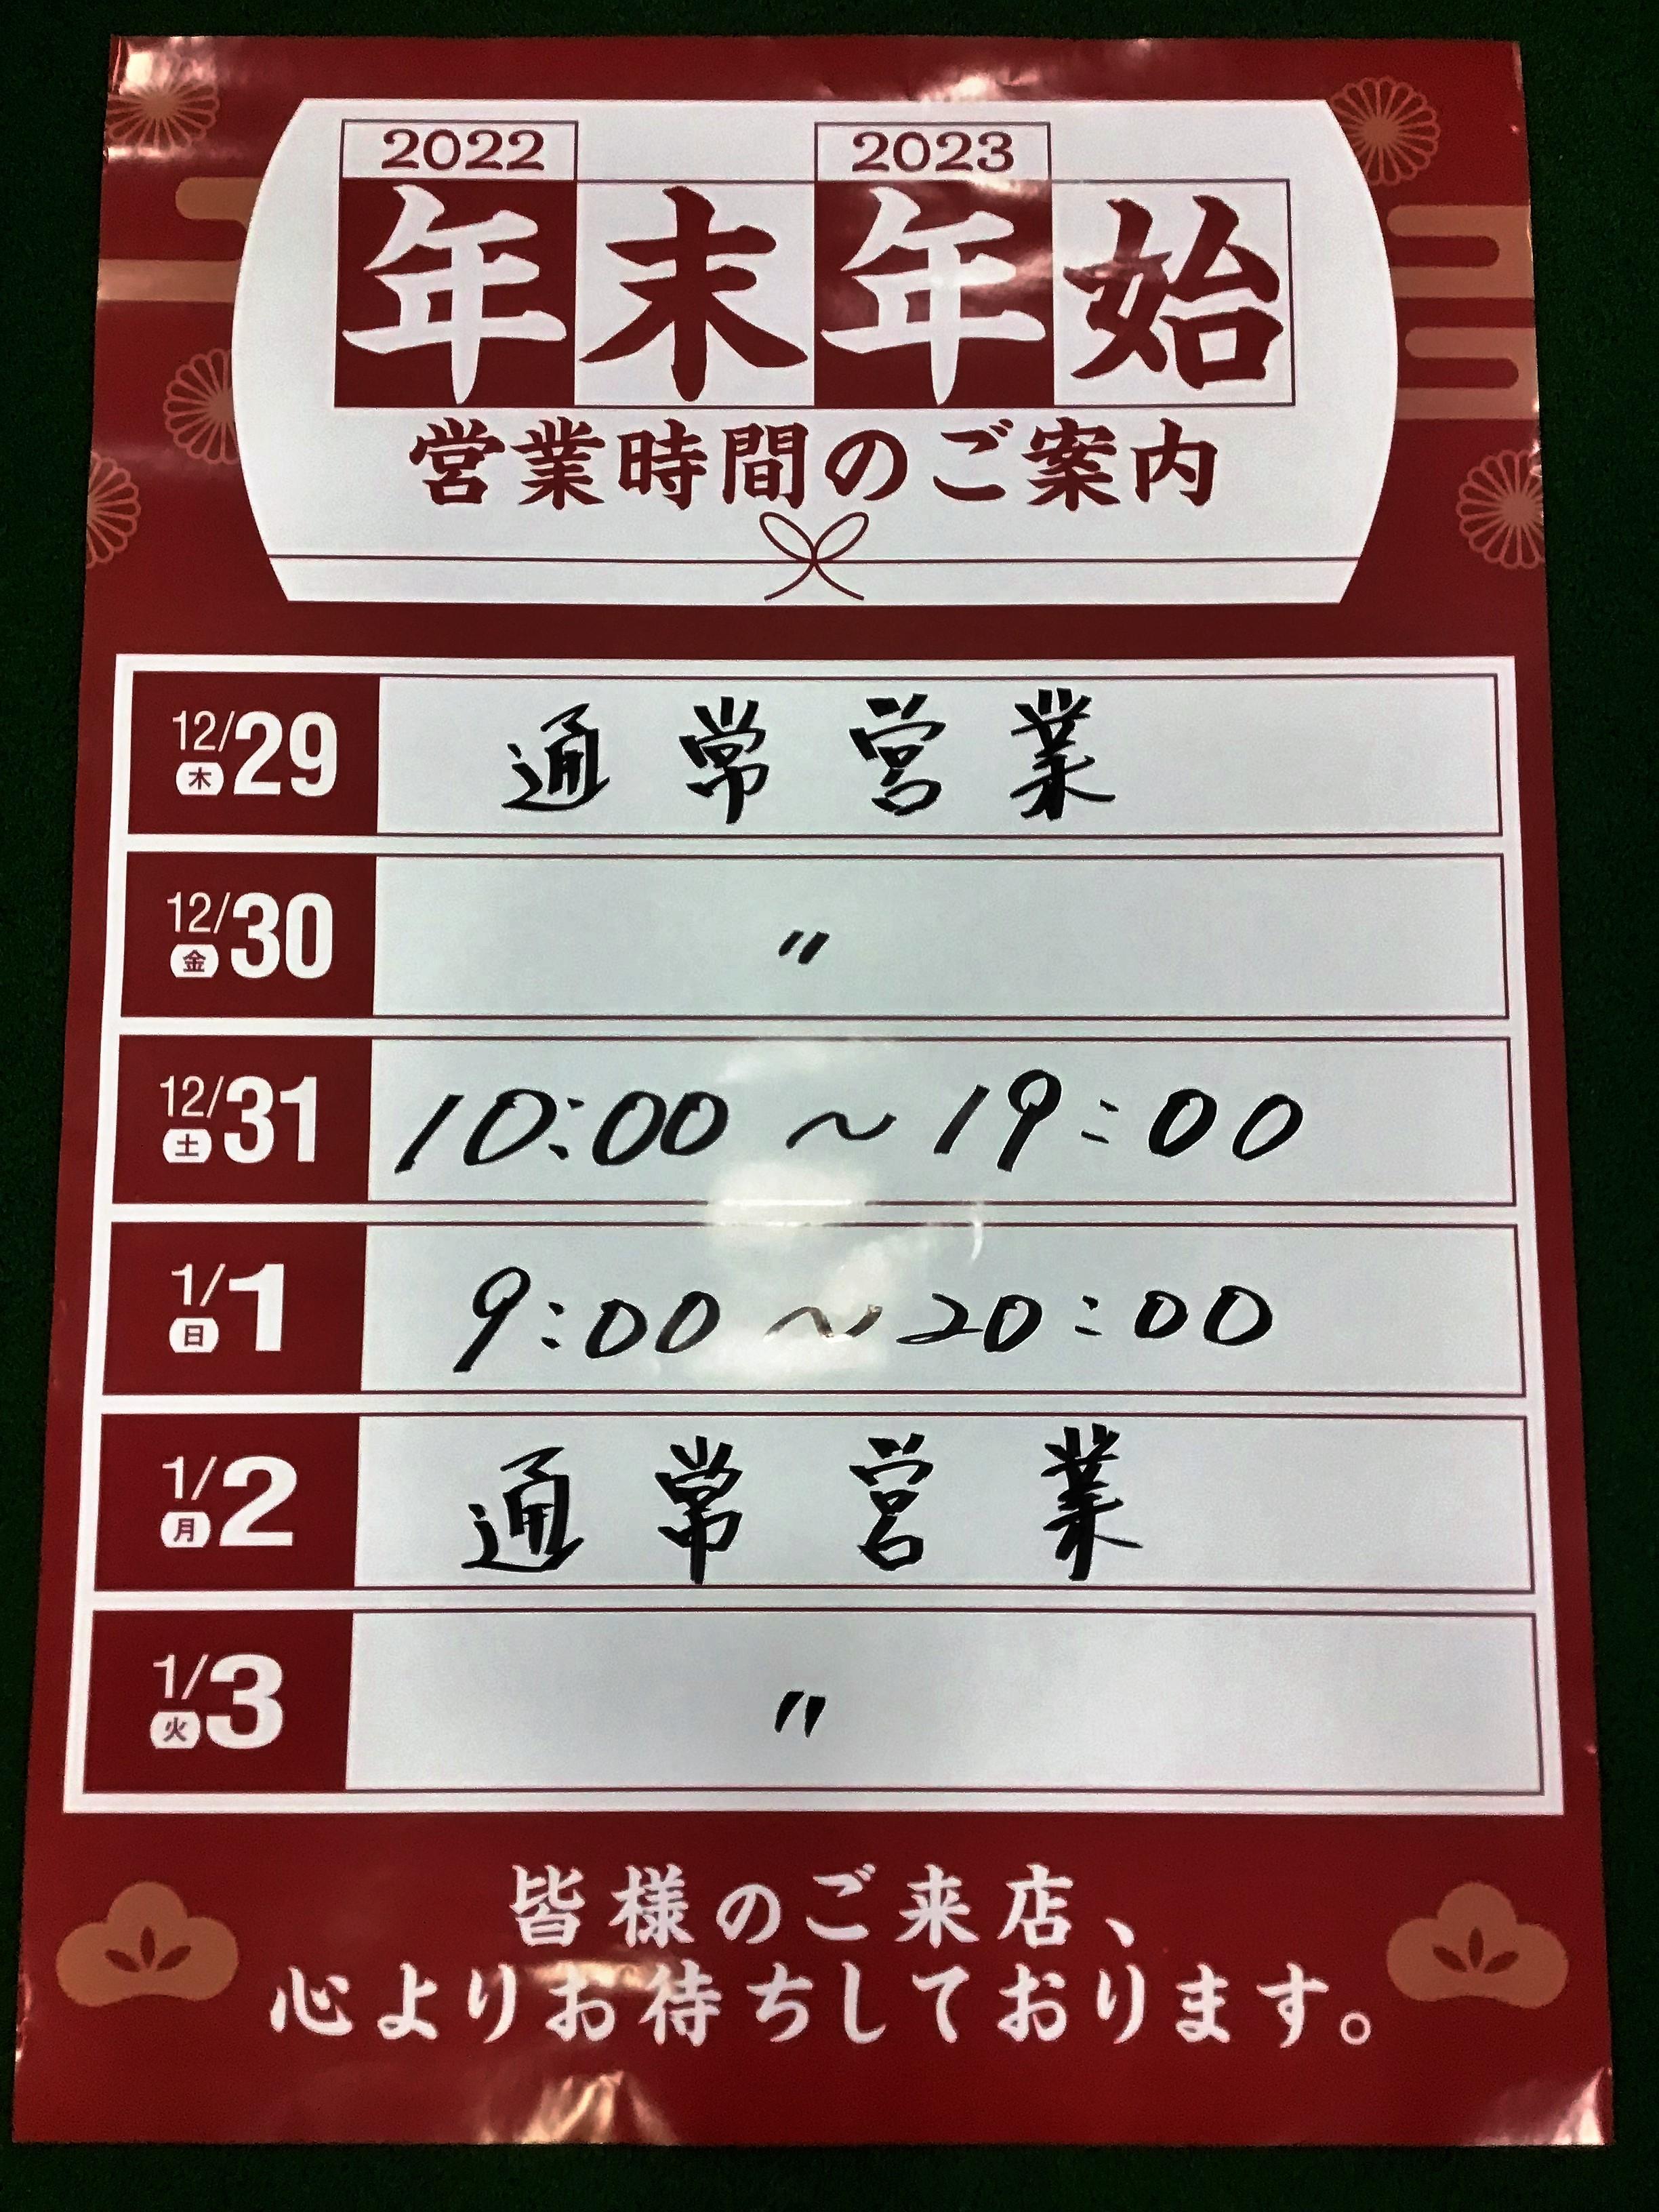 2022 2023
年末年始
営業時間のご案内
12/29 木 通常営業
12/30 金 〃
12/31 土 10:00 ～ 19:00
1/1 日 9:00 ～ 20:00
1/2 月 通常営業
1/3 火 〃
皆様のご来店、
心よりお待ちしております。